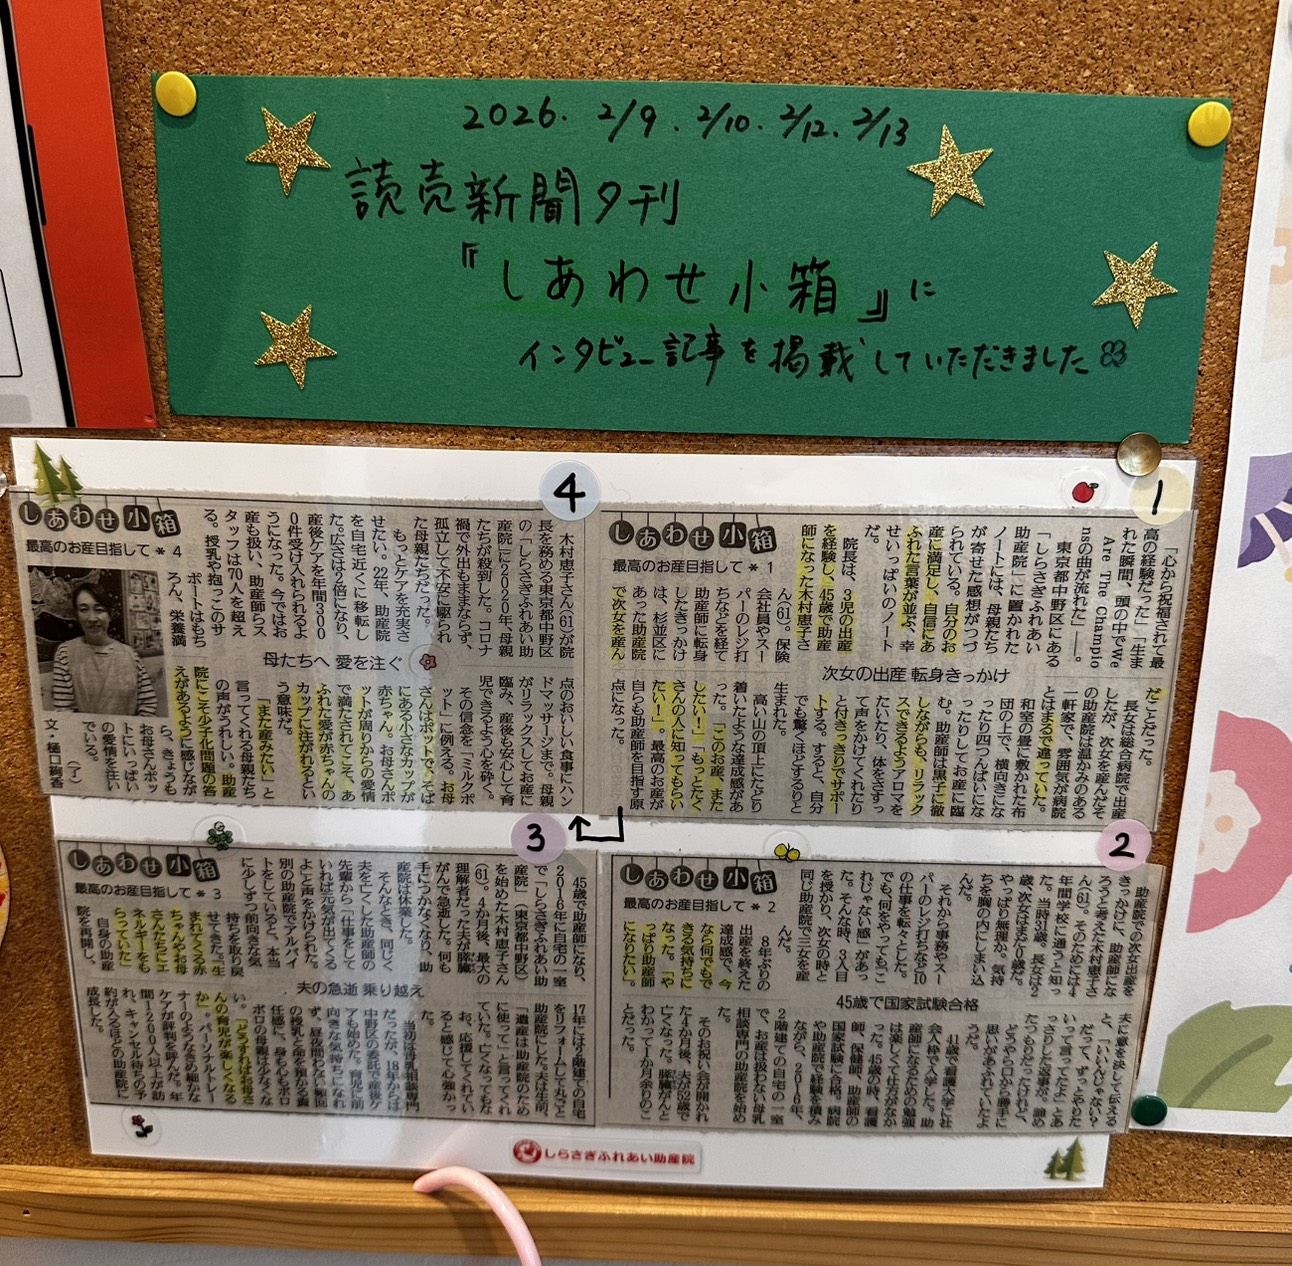 2026. 2/9. 2/10. 2/12. 2/13
読売新聞夕刊
『しあわせ小箱』に
インタビュー記事を掲載していただきました
1
しあわせ小箱
最高のお産目指して＊1
「心から祝福されて最
高の経験だった」「生ま
れた瞬間、頭の中でWe
Are The Champio
nsの曲が流れた」――。
東京都中野区にある
「しらさぎふれあい
助産院」に置かれた
ノートには、母親たち
が寄せた感想がつづ
られている。自分のお
産に満足し、自信にあ
ふれた言葉が並ぶ、幸
せいっぱいのノート
だ。
院長は、3児の出産
を経験し、45歳で助産
師になった木村恵子さ
ん(61)。保険
会社員やスー
パーのレジ打
ちなどを経て
助産師に転身
したきっかけ
は、杉並区に
あった助産院
で次女を産ん
次女の出産 転身きっかけ
だことだった。
長女は総合病院で出産
したが、次女を産んだそ
の助産院は温かみのある
一軒家で、雰囲気が病院
とはまるで違っていた。
和室の畳に敷かれた布
団の上で、横向きにな
ったり四つんばいにな
ったりしてお産に臨
む。助産師は黒子に徹
しながらも、リラック
スできるようアロマを
たいたり、体をさすっ
て声をかけてくれたり
と付きっきりでサポー
トする。すると、自分
でも驚くほどするりと
生まれた。
高い山の頂上にたどり
着いたような達成感があ
った。「このお産、また
したい！」「もっとたく
さんの人に知ってもらい
たい！」。最高のお産が
自らも助産師を目指す原
点になった。
2
しあわせ小箱
最高のお産目指して＊2
助産院での次女出産を
きっかけに、助産師にな
ろうと考えた木村恵子さ
ん(61)。そのためには4
年間学校に通うと知っ
た。当時31歳。長女は2
歳、次女はまだ0歳だ。
やっぱり無理か。気持
ちを胸の内にしまい込
んだ。
それから事務やスー
パーのレジ打ちなど10
の仕事を転々とした。
でも、何をやっても「こ
れじゃない感」があっ
た。そんな時、3人目
を授かり、次女の時と
同じ助産院で三女を産
んだ。
8年ぶりの
出産を終えた
達成感で、「今
なら何でもで
きる気持ちに
なった」。「や
っぱり助産師
になりたい」。
45歳で国家試験合格
夫に意を決して伝える
と、「いいんじゃない？
だって、ずっとやりた
いって言ってたし」とあ
っさりした返事が。諦め
たつもりだったけれど、
どうやら口から勝手に
思いがあふれていたよ
うだ。
41歳で看護大学に社
会人枠で入学した。助
産師になるための勉強
は楽しくて仕方がなか
った。45歳の時、看護
師、保健師、助産師の
国家試験に合格。病院
や助産院で経験を積み
ながら、2016年、
2階建ての自宅の一室
で、お産は扱わない母乳
相談専門の助産院を始め
た。
そのお祝い会が開かれ
た4か月後、夫が52歳で
亡くなった。膵臓がんと
わかって1か月余りのこ
とだった。
3
しあわせ小箱
最高のお産目指して＊3
45歳で助産師になり、
2016年に自宅の一室
で「しらさぎふれあい助
産院」（東京都中野区）
を始めた木村恵子さん
(61)。4か月後、最大の
理解者だった夫が膵臓
がんで急逝した。何も
手につかなくなり、助
産院は休業した。
そんなとき、同じく
夫を亡くした助産師の
先輩から「仕事をして
いれば元気が出てくる
よ」と声をかけられた。
別の助産院でアルバイ
トをしていると、本当
に少しずつ前向きな気
持ちを取り戻
せてきた。「生
まれてくる赤
ちゃんやお母
さんたちにエ
ネルギーをも
らっていた」
自身の助産
院を再開し、
夫の急逝 乗り越え
17年には2階建ての自宅
をリフォームして丸ごと
助産院にした。夫は生前、
「遺産は助産院のため
に使って」と言ってくれ
ていた。亡くなってもな
お、応援してくれてい
ると感じて心強かっ
た。
当初は母乳相談専門
だったが、18年からは
中野区の委託で産後ケ
アも始めた。育児に前
向きな気持ちになれれ
ず、昼夜問わない頻回
の授乳と命を預かる責
任感に、身も心もボロ
ボロの母親は少なくな
い。「どうすればお母さ
んの育児が楽しくなる
か」。パーソナルトレー
ナーのようなきめ細かな
ケアが評判を呼んだ。年
間1200人以上が訪
れ、キャンセル待ちの予
約が入るほどの助産院に
成長した。
4
しあわせ小箱
最高のお産目指して＊4
木村恵子さん(61)が院
長を務める東京都中野区
の「しらさぎふれあい助
産院」に2020年、母親
たちが殺到した。コロナ
禍で外出もままならず、
孤立して不安に駆られ
た母親たちだった。
もっとケアを充実さ
せたい。22年、助産院
を自宅近くに移転し
た。広さは2倍になり、
産後ケアを年間300
0件受け入れられるよ
うになった。今ではお
産も扱い、助産師らス
タッフは70人を超え
る。授乳や抱っこのサ
ポートはもち
ろん、栄養満
母たちへ 愛を注ぐ
点のおいしい食事にハン
ドマッサージまで。母親
がリラックスしてお産に
臨み、産後も安心して育
児できるよう心を砕く。
その信念を「ミルクポ
ット」に例える。お母
さんはポットで、そば
にある小さなカップが
赤ちゃん。お母さんポ
ットが周りからの愛情
で満たされてこそ、あ
ふれた愛が赤ちゃんの
カップに注がれるとい
う意味だ。
「また産みたい」と
言ってくれる母親たち
の声がうれしい。「助産
院にこそ少子化問題の答
えがあるように感じなが
ら、きょうも
お母さんポッ
トにいっぱい
の愛情を注い
でいる。
（了）
文・樋口絢香
しらさぎふれあい助産院